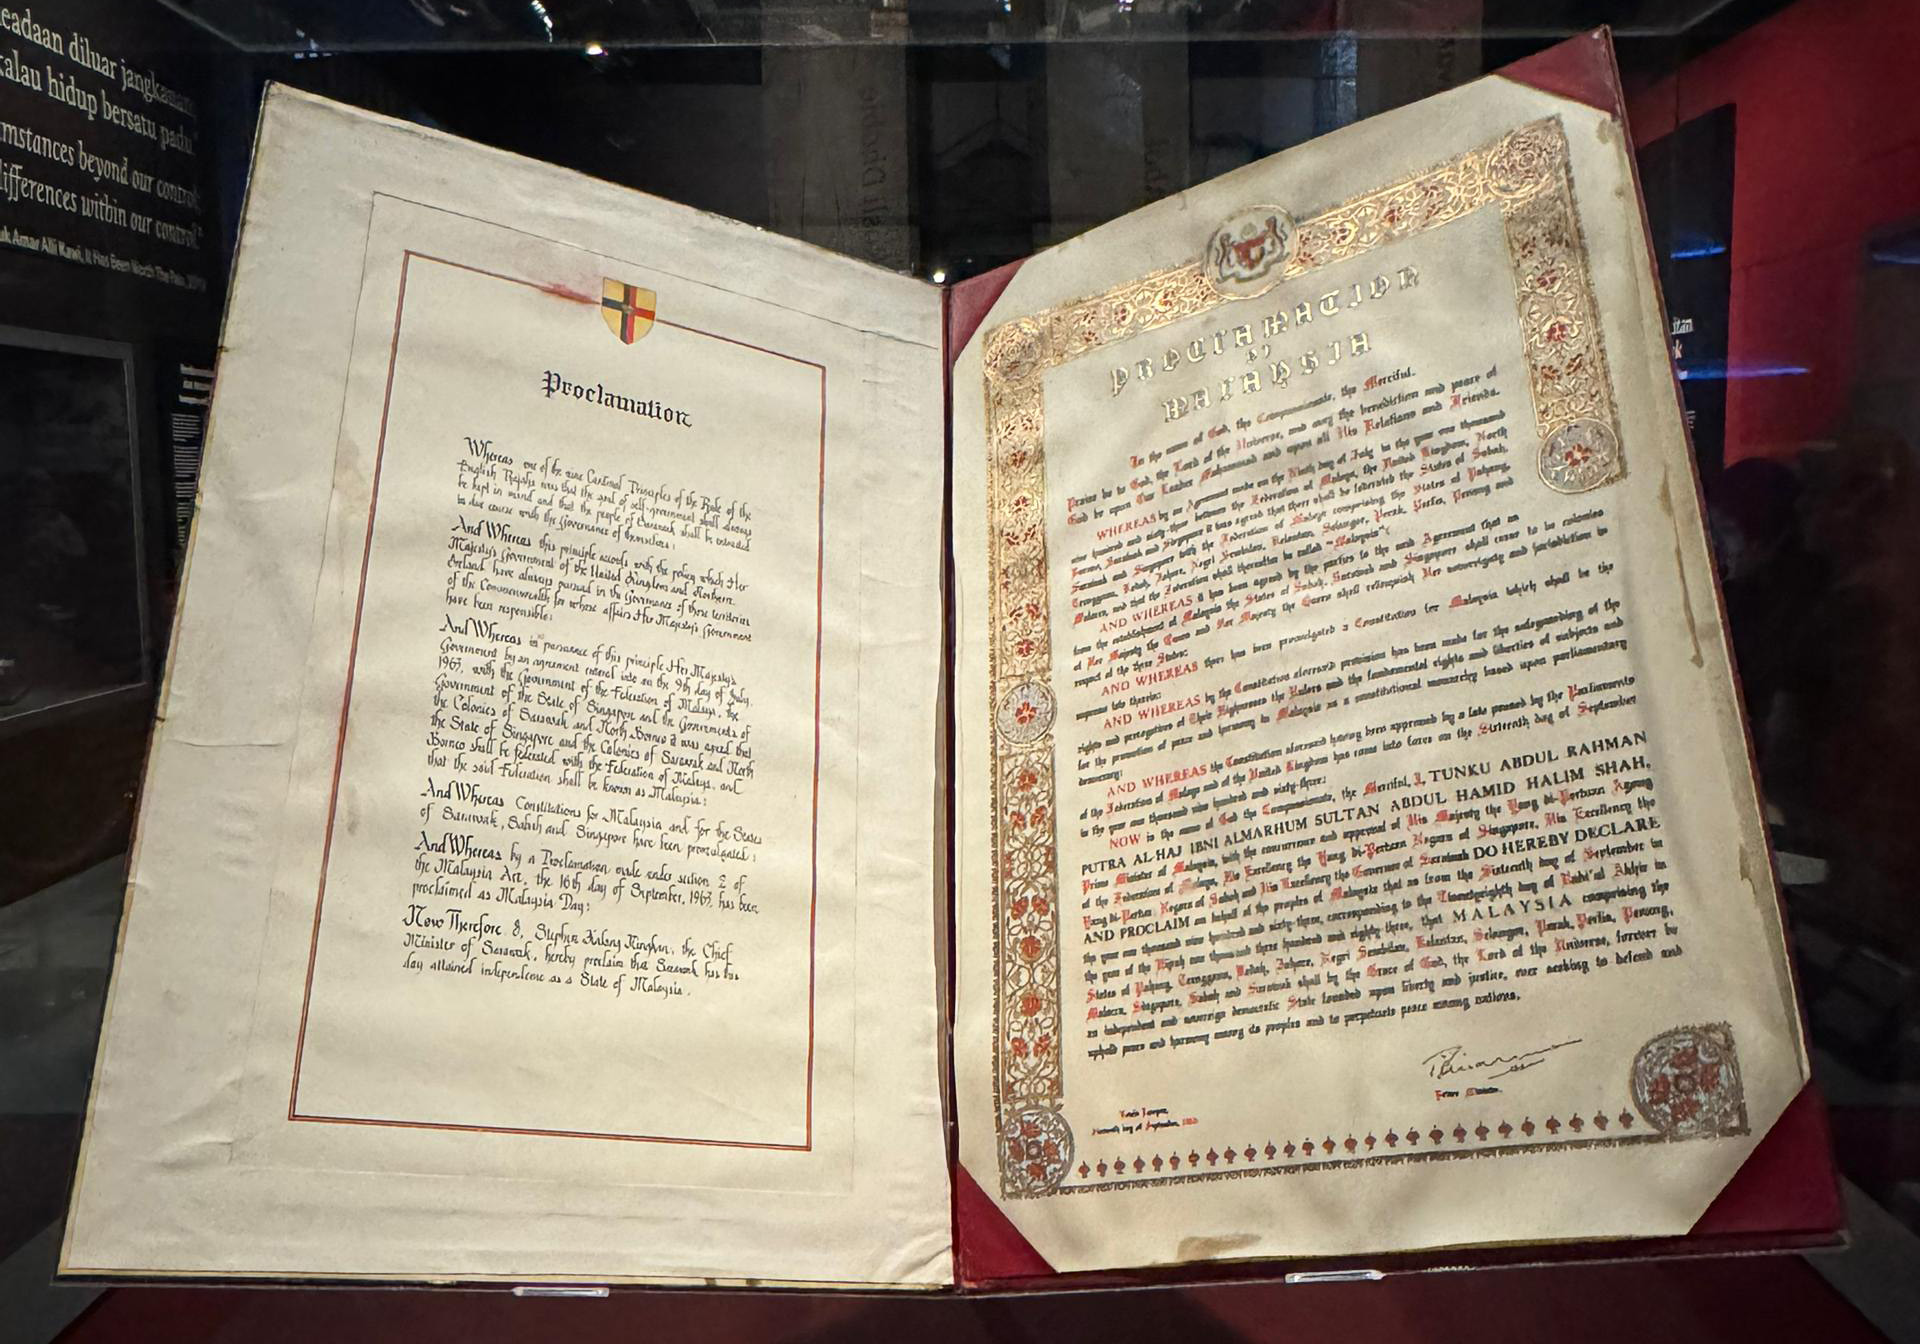 eadaan diluar jangkauan
kalau hidup bersatu padu"
mstances beyond our control,
differences within our control."
uk Amar Alli Kawi, It Has Been Worth The Pain,
Proclamation
Whereas one of the nine Cardinal Principles of the Rule of the
English Rajahs was that the goal of self-government shall always
be kept in mind and that the people of Sarawak shall be entrusted
in due course with the Governance of themselves;
And Whereas this principle accords with the policy which Her
Majesty's Government of the United Kingdom and Northern
Ireland have always pursued in the Governance of those territories
of the Commonwealth for whose affairs Her Majesty's Government
have been responsible;
And Whereas in pursuance of this principle Her Majesty's
Government by an agreement entered into on the 9th day of July,
1963, with the Government of the Federation of Malaya, the
Government of the State of Singapore and the Governments of
the Colonies of Sarawak and North Borneo it was agreed that
the State of Singapore and the Colonies of Sarawak and North
Borneo shall be federated with the Federation of Malaya, and
that the said Federation shall be known as Malaysia;
And Whereas Constitutions for Malaysia and for the States
of Sarawak, Sabah and Singapore have been promulgated;
And Whereas by a Proclamation made under section 2 of
the Malaysia Act, the 16th day of September, 1963, has been
proclaimed as Malaysia Day;
Now Therefore I, Stephen Kalong Ningkan, the Chief
Minister of Sarawak, hereby proclaim that Sarawak has this
day attained independence as a State of Malaysia.
PROCLAMATION
OF
MALAYSIA
In the name of God, the Compassionate, the Merciful.
Praise be to God, the Lord of the Universe, and may the benediction and peace of
God be upon Our Leader Muhammad and upon all His Relations and Friends.
WHEREAS by an Agreement made on the Ninth day of July in the year one thousand
nine hundred and sixty-three between the Federation of Malaya, the United Kingdom, North
Borneo, Sarawak and Singapore it was agreed that there shall be federated the States of Sabah,
Sarawak and Singapore with the Federation of Malaya comprising the States of Pahang,
Trengganu, Kedah, Johore, Negri Sembilan, Kelantan, Selangor, Perak, Perlis, Penang and
Malacca, and that the Federation shall thereafter be called "Malaysia";
AND WHEREAS it has been agreed by the parties to the said Agreement that as
from the establishment of Malaysia the States of Sabah, Sarawak and Singapore shall cease to be colonies
of Her Majesty the Queen and Her Majesty the Queen shall relinquish Her sovereignty and jurisdiction in
respect of the three States;
AND WHEREAS there has been promulgated a Constitution for Malaysia which shall be the
supreme law therein;
AND WHEREAS by the Constitution aforesaid provision has been made for the safeguarding of the
rights and prerogatives of Their Highnesses the Rulers and the fundamental rights and liberties of subjects and
for the promotion of peace and harmony in Malaysia as a constitutional monarchy based upon parliamentary
democracy;
AND WHEREAS the Constitution aforesaid having been approved by a law passed by the Parliaments
of the Federation of Malaya and of the United Kingdom has come into force on the Sixteenth day of September
in the year one thousand nine hundred and sixty-three;
NOW in the name of God the Compassionate, the Merciful, I, TUNKU ABDUL RAHMAN
PUTRA AL-HAJ IBNI ALMARHUM SULTAN ABDUL HAMID HALIM SHAH,
Prime Minister of Malaysia, with the concurrence and approval of His Majesty the Yang di-Pertuan Agong
of the Federation of Malaya, His Excellency the Yang di-Pertuan Negara of Singapore, His Excellency the
Yang di-Pertua Negara of Sabah and His Excellency the Governor of Sarawak DO HEREBY DECLARE
AND PROCLAIM on behalf of the peoples of Malaysia that as from the Sixteenth day of September in
the year one thousand nine hundred and sixty-three, corresponding to the Twentyeighth day of Rabi'al Akhir in
the year of the Hijrah one thousand three hundred and eighty-three, that MALAYSIA comprising the
States of Pahang, Trengganu, Kedah, Johore, Negri Sembilan, Kelantan, Selangor, Perak, Perlis, Penang,
Malacca, Singapore, Sabah and Sarawak shall by the Grace of God, the Lord of the Universe, forever be
an independent and sovereign democratic State founded upon liberty and justice, ever seeking to defend and
uphold peace and harmony among its peoples and to perpetuate peace among nations.
Prime Minister.
Kuala Lumpur,
Sixteenth day of September, 1963